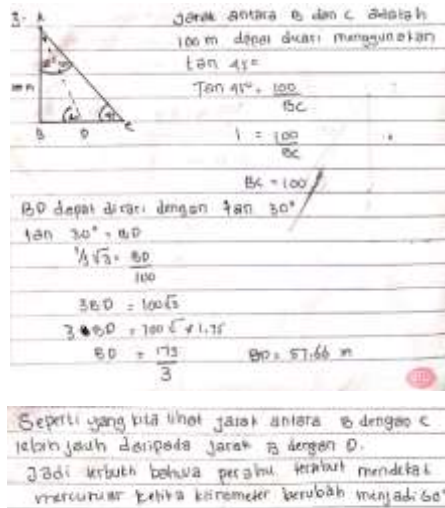 3. A
Jarak antara B dan C adalah
100 m dapat dicari menggunakan
tan 45°
Tan 45° = 100
BC
1 = 100
BC
BC = 100
B D C
BD dapat dicari dengan tan 30°
tan 30° = BD
1/3 √3 = BD
100
3BD = 100√3
3 BD = 100 × 1.75
BD = 173
3
BD = 57.66 m
Seperti yang kita lihat jarak antara B dengan C
lebih jauh daripada jarak B dengan D.
Jadi terbukti bahwa perahu tersebut mendekat
mercusuar ketika klinometer berubah menjadi 60°